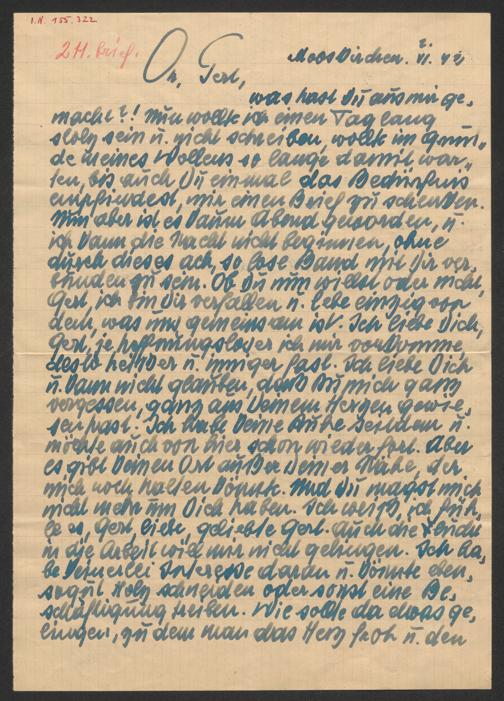 I.N. 155.322
2 H. Brief.
Mooskirchen. 2. VI. 42
Oh, Gert,
was hast Du aus mir ge-
macht?! Nun wollte ich einen Tag lang
stolz sein u. nicht schreiben, wollte im Grun-
de meines Wollens so lange damit war-
ten, bis auch Du einmal das Bedürfnis
empfindest, mir einen Brief zu schenken.
Nun aber ist es kaum Abend geworden, u.
ich kann die Nacht nicht beginnen, ohne
durch dieses ach, so lose Band mit Dir ver-
bunden zu sein. Ob Du nun willst oder nicht,
Gert, ich bin Dir verfallen u. lebe einzig von
dem, was uns gemeinsam ist. Ich liebe Dich,
Gert, je hoffnungsloser ich mir vorkomme,
desto heißer u. inniger fast. Ich liebe Dich
u. kann nicht glauben, dass Du mich ganz
vergessen, ganz aus Deinem Herzen gewie-
sen hast. Ich habe keine Ruhe seitdem u.
möchte auch von hier schon wieder fort. Aber
es gibt keinen Ort außer Deiner Nähe, der
mich noch halten könnte. Und Du magst mich
nicht mehr um Dich haben. Ich weiß, ich füh-
le es, Gert, liebe, geliebte Gert. Auch die Flucht
in die Arbeit will mir nicht gelingen. Ich ha-
be keinerlei Interesse daran u. könnte eben-
sogut Holz schneiden oder sonst eine Be-
schäftigung treiben. Wie sollte da etwas ge-
lingen, zu dem man das Herz froh u. den